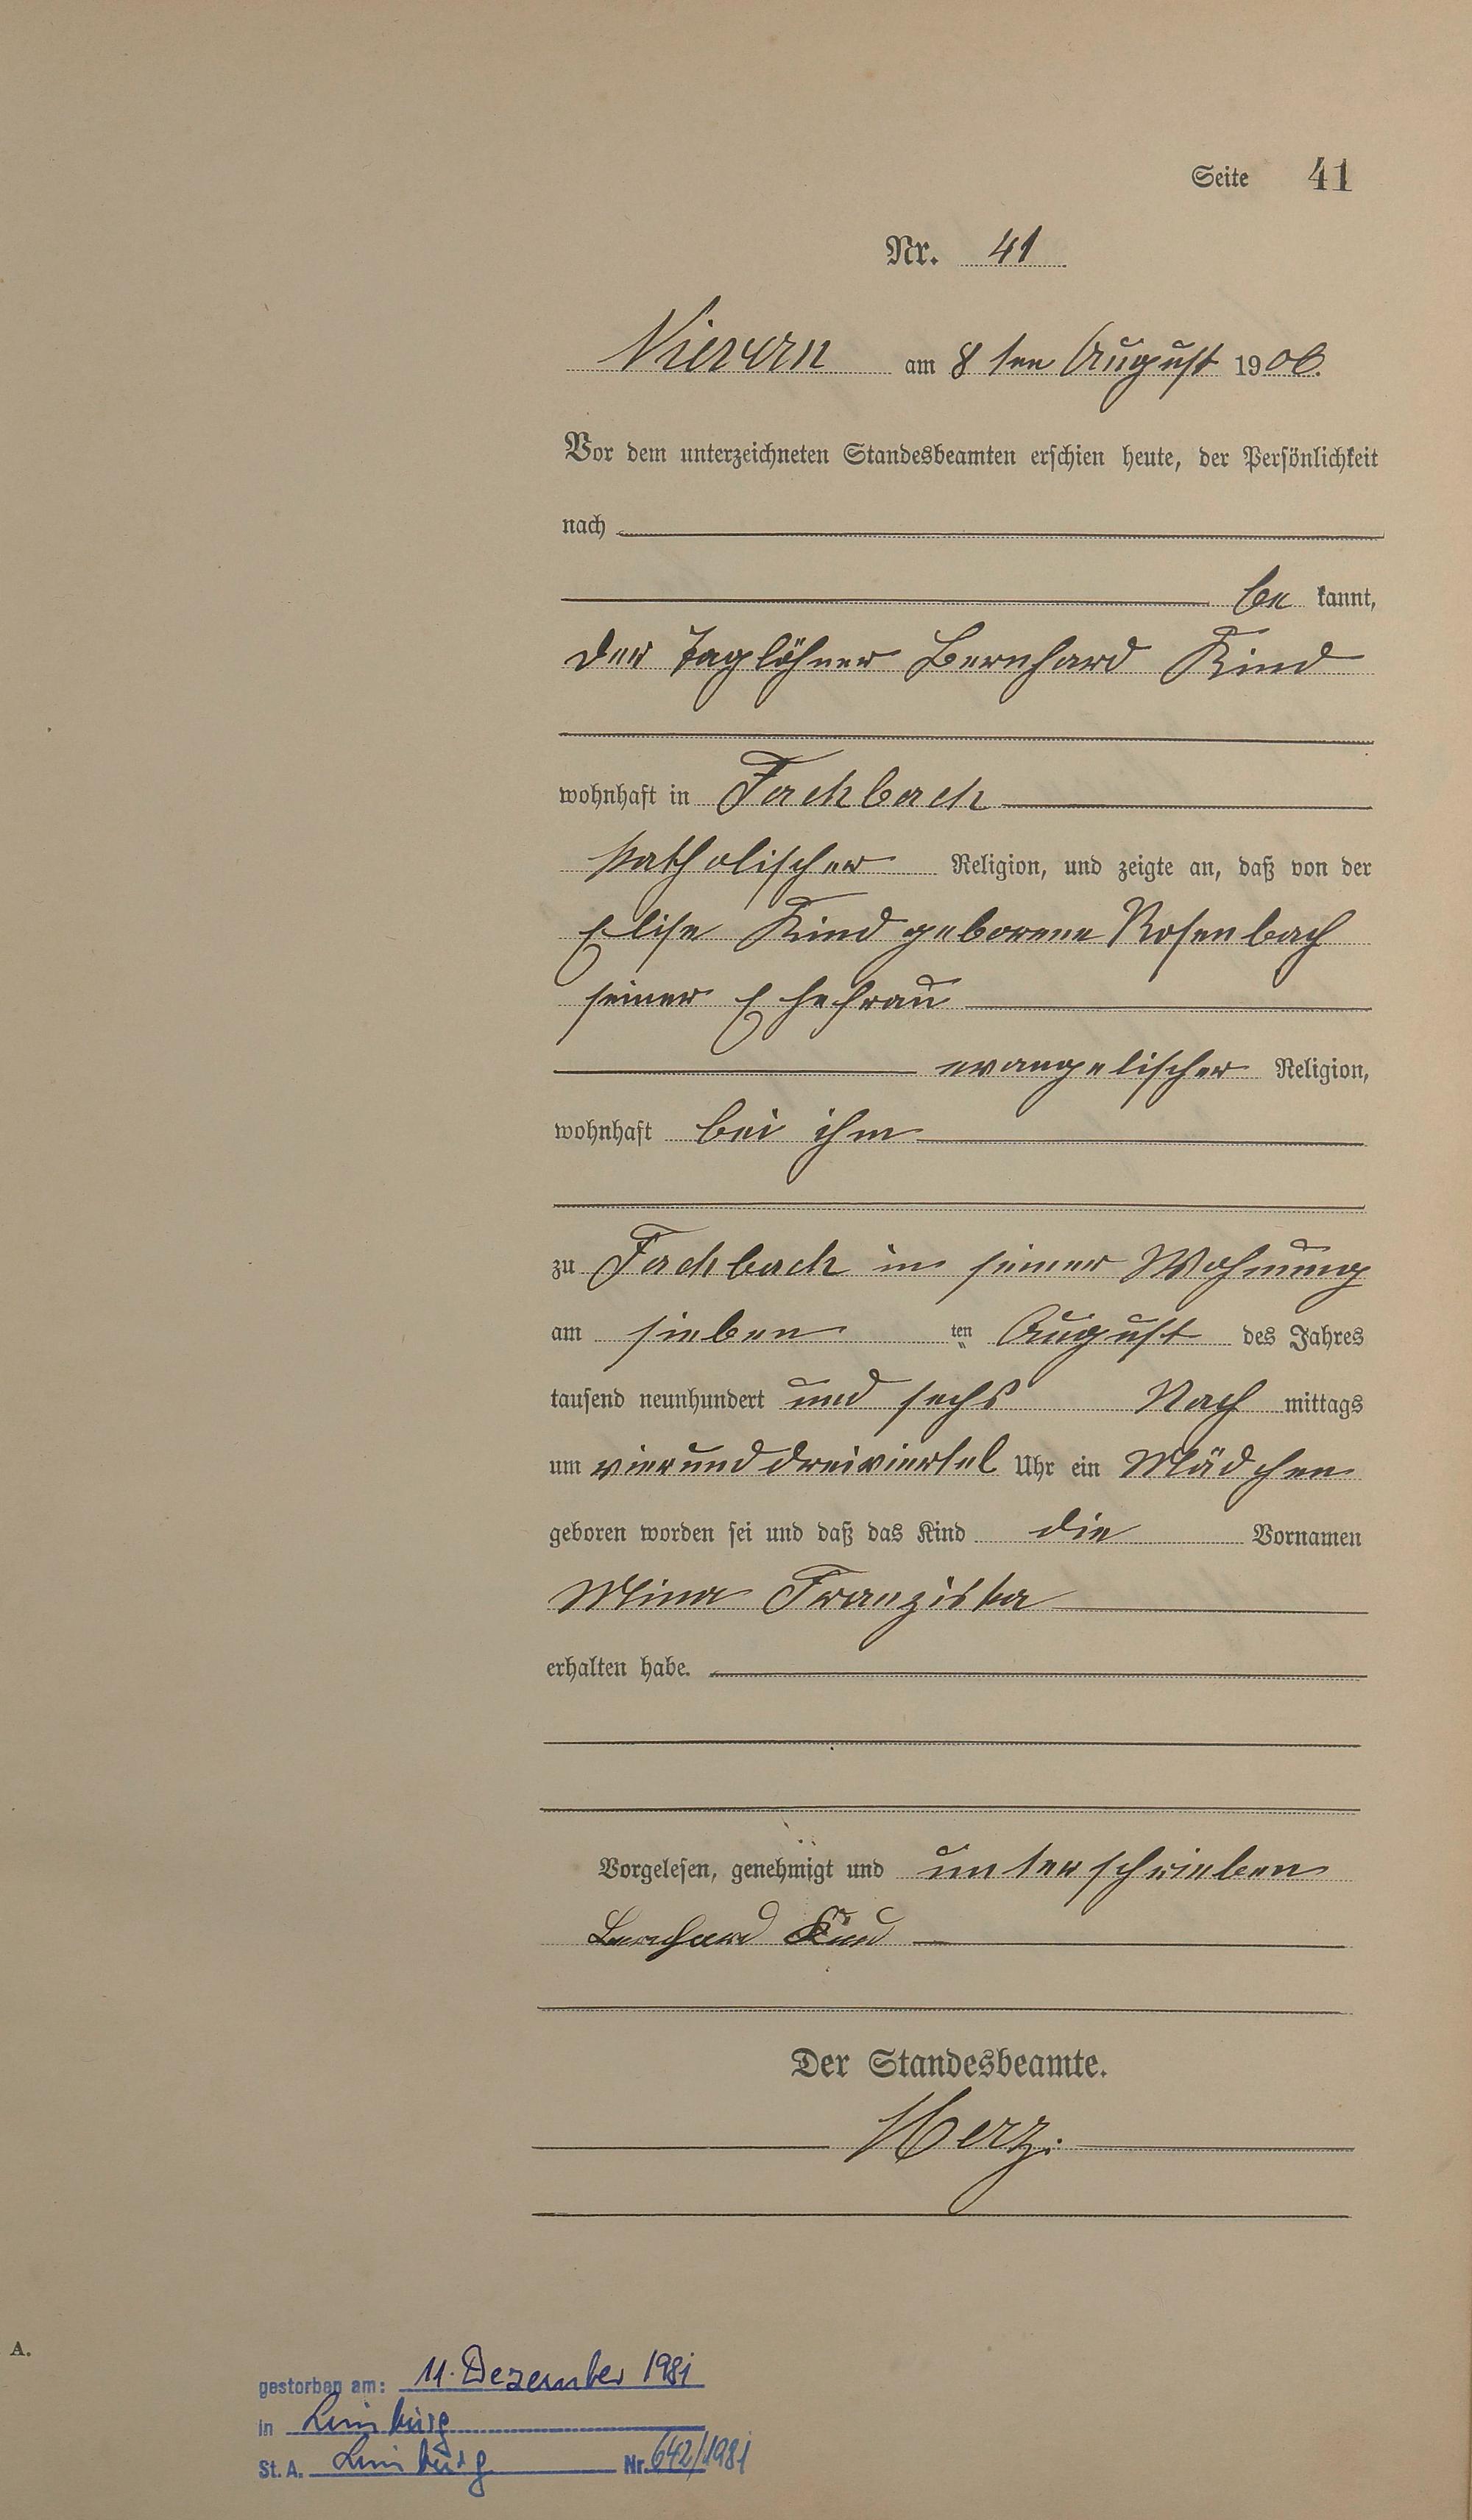 Seite 41
Nr. 41
Nievern am 8 ten August 1906.
Vor dem unterzeichneten Standesbeamten erschien heute, der Persönlichkeit
nach
be kannt,
der Taglöhner Bernhard Kind
wohnhaft in Fachbach
katholischer Religion, und zeigte an, daß von der
Elise Kind geborene Rosenbach
seiner Ehefrau
evangelischer Religion,
wohnhaft bei ihm
zu Fachbach in seiner Wohnung
am sieben ten August des Jahres
tausend neunhundert und sechs Nach mittags
um vier und dreiviertel Uhr ein Mädchen
geboren worden sei und daß das Kind die Vornamen
Mina Franziska
erhalten habe.
Vorgelesen, genehmigt und unterschrieben
Bernhard Kind
Der Standesbeamte.
Herz.
A.
gestorben am: 11. Dezember 1981
in Limburg
St. A. Limburg Nr. 642/1981